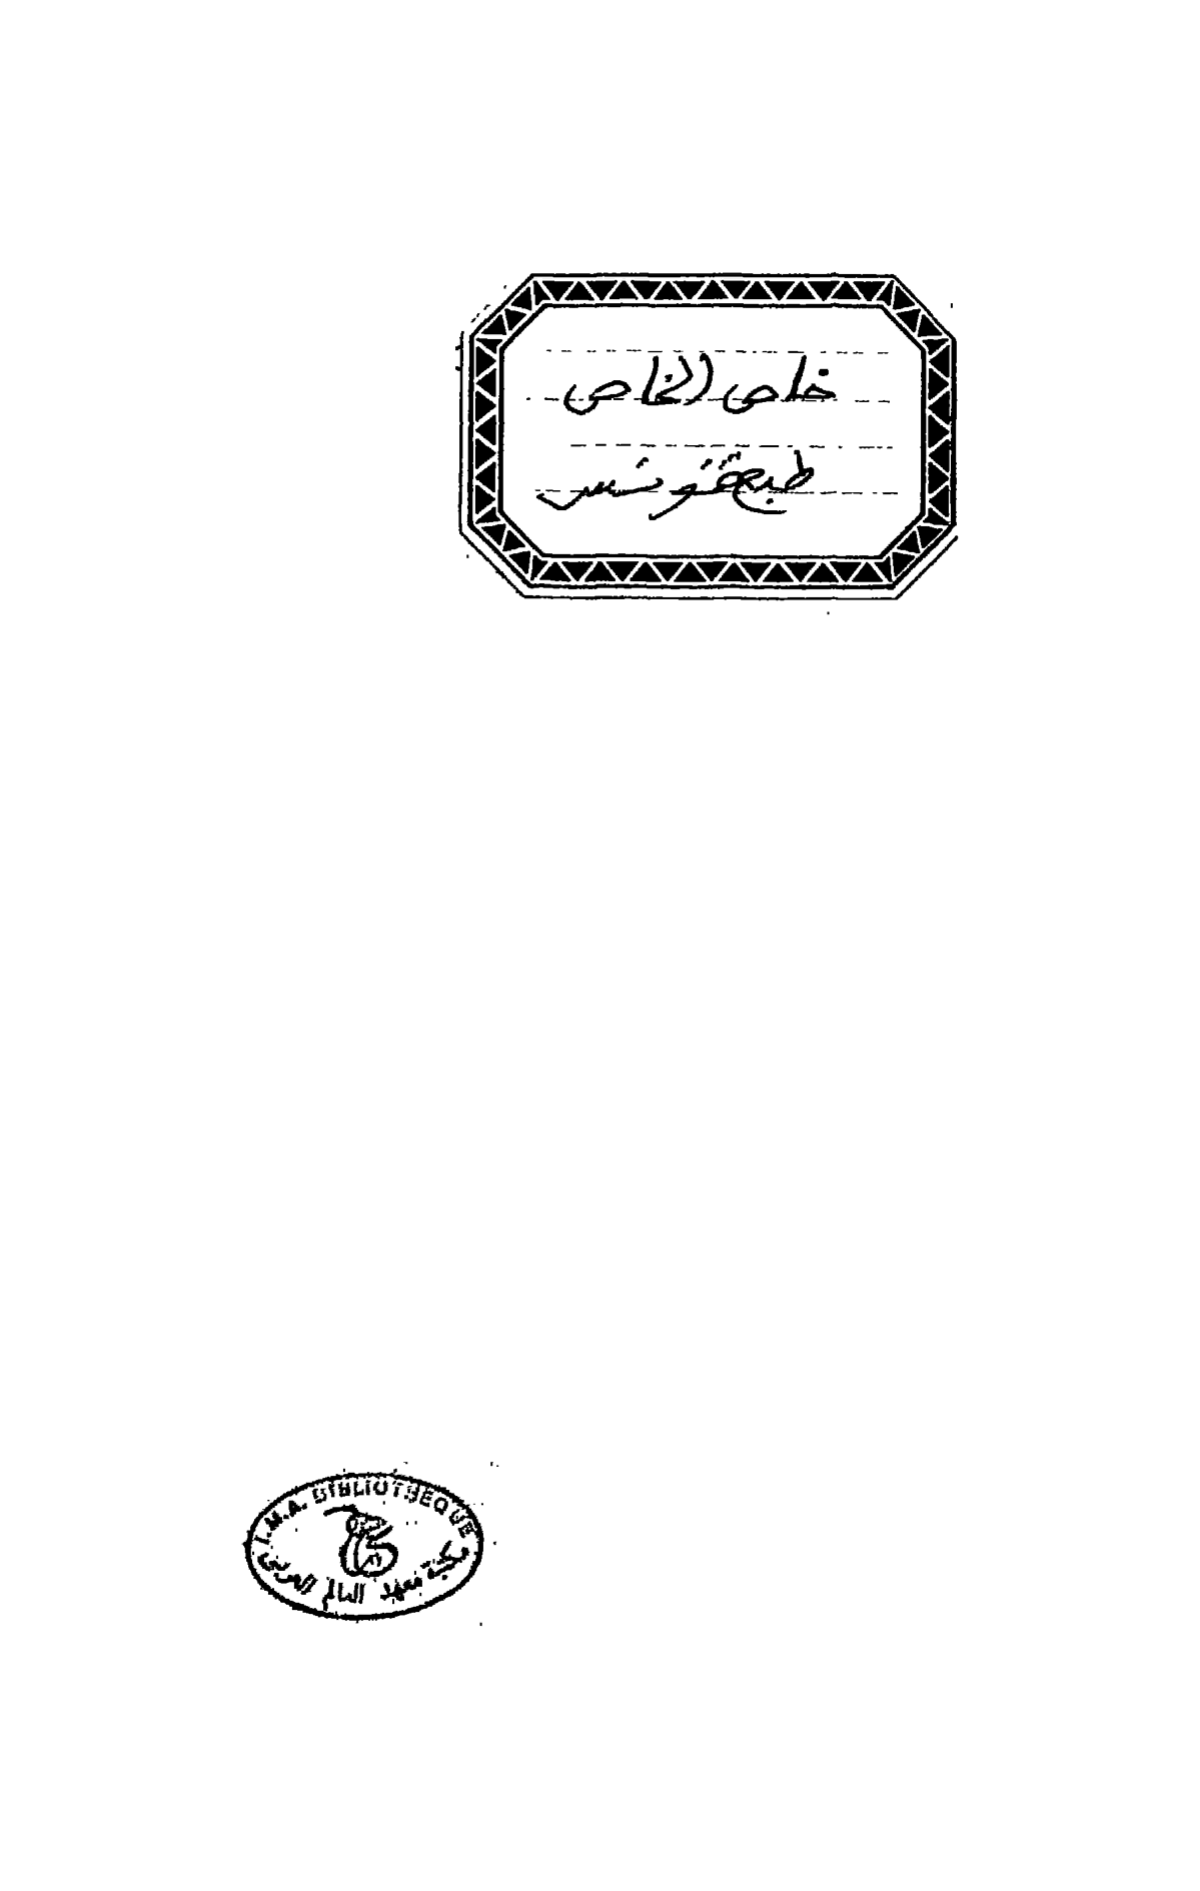 خاص الخاص
طبعة تونس
I.M.A. BIBLIOTHEQUE
مكتبة معهد العالم العربي